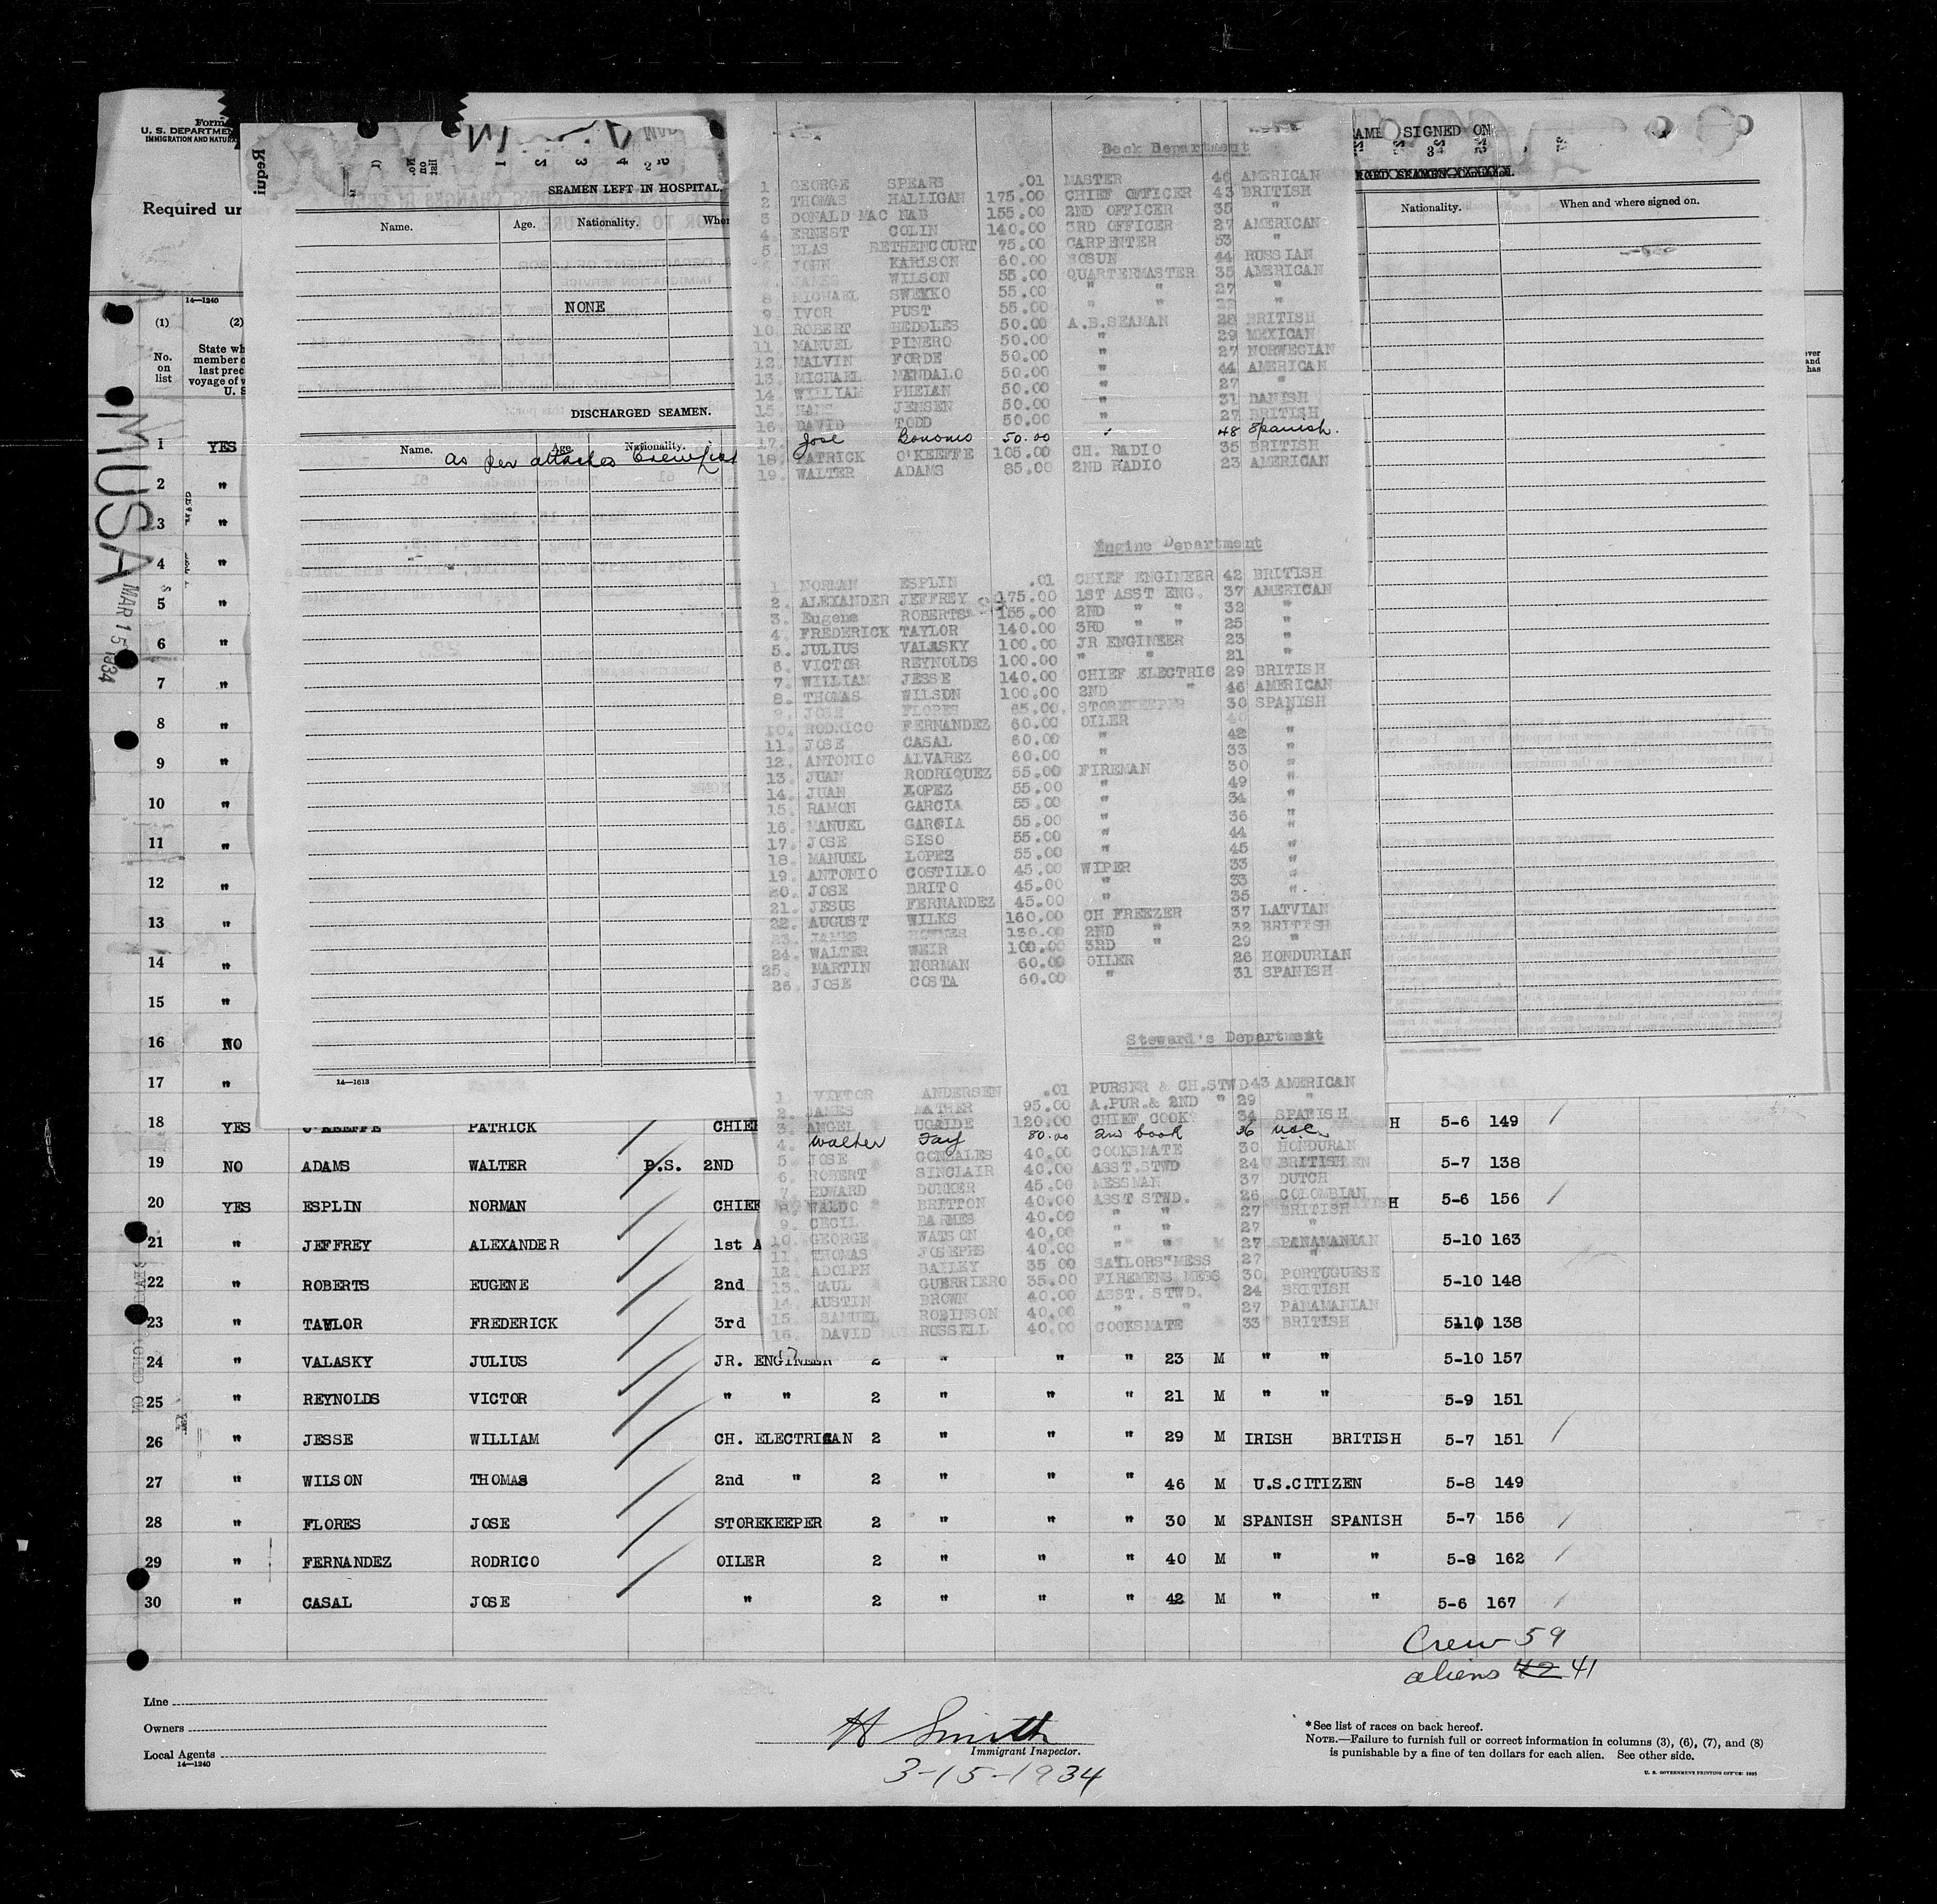 Form
U. S. DEPARTMEN
IMMIGRATION AND NATURA
Requi
Required un
SEAMEN LEFT IN HOSPITAL,
Name. Age. Nationality. Wher
NONE
DISCHARGED SEAMEN.
Name. Age. Nationality.
as per attached Crew list
14—1613
AME SIGNED ON
Nationality. When and where signed on.
14—1240
(1) (2)
No. on list
State wh
member o
last prec
voyage of v
U. S
MUSA
MAR 15 1934
Deck Department
1 GEORGE SPEARS .01 MASTER 46 AMERICAN
2 THOMAS HALLIGAN 175.00 CHIEF OFFICER 43 BRITISH
3 DONALD MAC NAB 155.00 2ND OFFICER 35 "
4. ERNEST COLIN 140.00 3RD OFFICER 27 AMERICAN
5. BLAS BETHENCOURT 75.00 CARPENTER 53 "
JOHN KARLSON 60.00 BOSUN 44 RUSSIAN
JAMES WILSON 55.00 QUARTERMASTER 35 AMERICAN
8 MICHAEL SWEYKO 55.00 " " 27 "
9. IVOR PUST 55.00 " " 22 "
10. ROBERT HEDDLES 50.00 A.B.SEAMAN 28 BRITISH
11 MANUEL PINERO 50.00 " 29 MEXICAN
12. MALVIN FORDE 50.00 " 27 NORWEGIAN
13. MICHAEL MANDALO 50.00 " 44 AMERICAN
14. WILLIAM PHELAN 50.00 " 27 "
15. HANS JENSEN 50.00 " 31 DANISH
16. DAVID TODD 50.00 " 27 BRITISH
17. Jose Bonomo 50.00 " 48 Spanish.
18. PATRICK O'KEEFFE 105.00 CH. RADIO 35 BRITISH
19. WALTER ADAMS 85.00 2ND RADIO 23 AMERICAN
Engine Department
1 NORMAN ESPLIN .01 CHIEF ENGINEER 42 BRITISH
2. ALEXANDER JEFFREY 175.00 1ST ASST ENG. 37 AMERICAN
3. Eugene ROBERTS 155.00 2ND " " 32 "
4. FREDERICK TAYLOR 140.00 3RD " " 25 "
5. JULIUS VALASKY 100.00 JR ENGINEER 23 "
6. VICTOR REYNOLDS 100.00 " " 21 "
7. WILLIAM JESSE 140.00 CHIEF ELECTRIC 29 BRITISH
8. THOMAS WILSON 100.00 2ND " 46 AMERICAN
9. JOSE FLORES 65.00. STOREKEEPER 30 SPANISH
10. RODRICO FERNANDEZ 60.00 OILER 40 "
11. JOSE CASAL 60.00 " 42 "
12. ANTONIO ALVAREZ 60.00 " 33 "
13. JUAN RODRIQUEZ 55.00 FIREMAN 30 "
14. JUAN LOPEZ 55.00 " 49 "
15. RAMON GARCIA 55.00 " 34 "
16. MANUEL GARCIA 55.00 " 36 "
17. JOSE SISO 55.00 " 44 "
18. MANUEL LOPEZ 55.00 " 45 "
19. ANTONIO COSTILLO 45.00 WIPER 33 "
20. JOSE BRITO 45.00 " 33 "
21. JESUS FERNANDEZ 45.00 " 35 "
22. AUGUST WILKS 160.00 CH FREEZER 37 LATVIAN
23. JAMES 130.00 2ND " 32 BRITISH
24. WALTER WEIR 100.00 3RD " 29 "
25. MARTIN NORMAN 60.00 OILER 26 HONDURIAN
26. JOSE COSTA 60.00 " 31 SPANISH
Steward's Department
1 VIKTOR ANDERSEN .01 PURSER & CH.STWD 43 AMERICAN
2. JAMES MATHER 95.00 A.PUR.& 2ND " 29 "
3. ANGEL UGARIDE 120.00 CHIEF COOK 34 SPANISH
4. Walter Fay 80.00 2nd Cook 36 USC
5 JOSE GONSALES 40.00 COOKSMATE 30 HONDURAN
6. ROBERT SINCLAIR 40.00 ASST.STWD 24 BRITISH
7. EDWARD DUNKER 45.00 MESSMAN 37 DUTCH
8 WALDO BRITTON 40.00 ASST STWD. 26 COLOMBIAN
9. CECIL BARNES 40.00 " " 27 BRITISH
10. GEORGE WATSON 40.00 " " 27 "
11. THOMAS JOSEPHS 40.00 " " 27 PANAMANIAN
12. ADOLPH BAILEY 35 00 SAILORS MESS 27 "
13. RAUL GUERRIERO 35.00 FIREMENS MESS 30 PORTUGUESE
14. AUSTIN BROWN 40.00 ASST. STWD. 24 BRITISH
15. SAMUEL ROBINSON 40.00 " " 27 PANAMANIAN
16. DAVID RUSSELL 40.00 COOKSMATE 33 BRITISH
1 YES
2 "
3 "
4 "
5 "
6 "
7 "
8 "
9 "
10 "
11 "
12 "
13 "
14 "
15 "
16 NO
17 "
18 YES O'KEEFFE PATRICK CHIEF H 5-6 149
19 NO ADAMS WALTER P.S. 2ND 5-7 138
20 YES ESPLIN NORMAN CHIEF H 5-6 156
21 " JEFFREY ALEXANDER 1st A 5-10 163
22 " ROBERTS EUGENE 2nd 5-10 148
23 " TAYLOR FREDERICK 3rd 5110 138
24 " VALASKY JULIUS JR. ENGINEER 2 " " " 23 M " " 5-10 157
25 " REYNOLDS VICTOR " " 2 " " " 21 M " " 5-9 151
26 " JESSE WILLIAM CH. ELECTRICAN 2 " " " 29 M IRISH BRITISH 5-7 151
27 " WILSON THOMAS 2nd " 2 " " " 46 M U.S.CITIZEN 5-8 149
28 " FLORES JOSE STOREKEEPER 2 " " " 30 M SPANISH SPANISH 5-7 156
29 " FERNANDEZ RODRICO OILER 2 " " " 40 M " " 5-9 162
30 " CASAL JOSE " 2 " " " 42 M " " 5-6 167
Crew 59
aliens 42 41
Line
Owners
Local Agents
14—1240
H Smith
Immigrant Inspector.
3-15-1934
*See list of races on back hereof.
NOTE.—Failure to furnish full or correct information in columns (3), (6), (7), and (8)
is punishable by a fine of ten dollars for each alien. See other side.
U. S. GOVERNMENT PRINTING OFFICE: